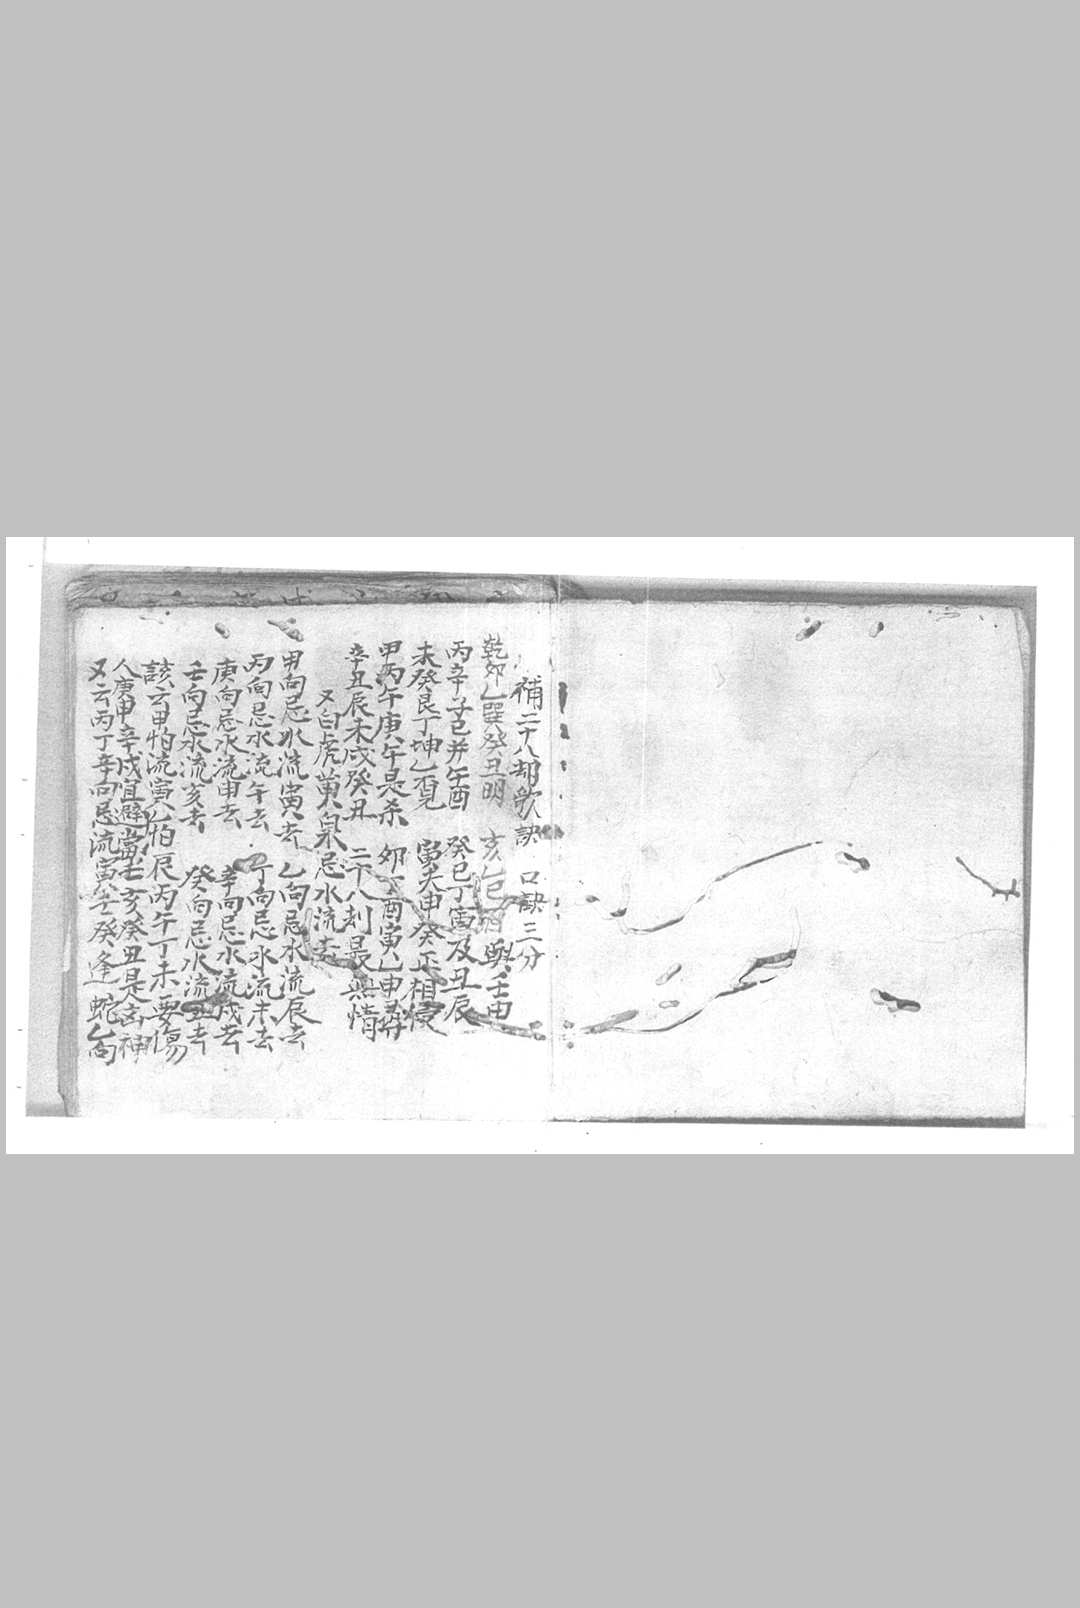 補二十八却歌訣 口訣三分
乾卯乙巽癸丑明 亥乙巳 艮壬申
丙辛子巳并午酉 癸巳丁寅及丑辰
未癸艮丁坤乙覓 申癸正相侵
甲丙午庚午是杀 卯丁酉寅乙申尋
辛丑辰未戌癸丑 二十八刦最無情
又白虎黄泉忌水流去
甲向忌水流寅去 乙向忌水流辰去
丙向忌水流午去 丁向忌水流未去
庚向忌水流申去 辛向忌水流戌去
壬向忌水流亥去 癸向忌水流丑去
訣云甲怕流寅乙怕辰丙午丁未要傷
人庚申辛戌宜避當壬亥癸丑是凶神
又云丙丁辛向忌流寅 壬癸逢蛇乙向